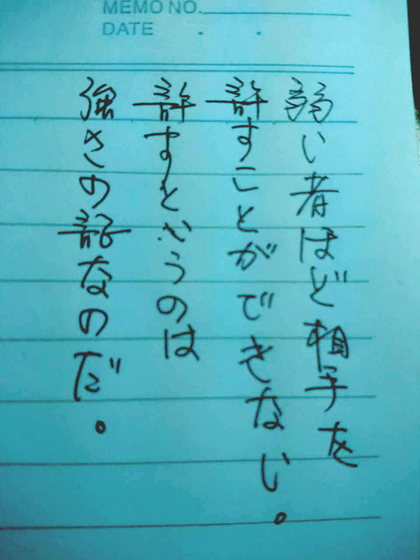 MEMO NO.
DATE . .
弱い者ほど相手を
許すことができない。
許すというのは
強さの証なのだ。